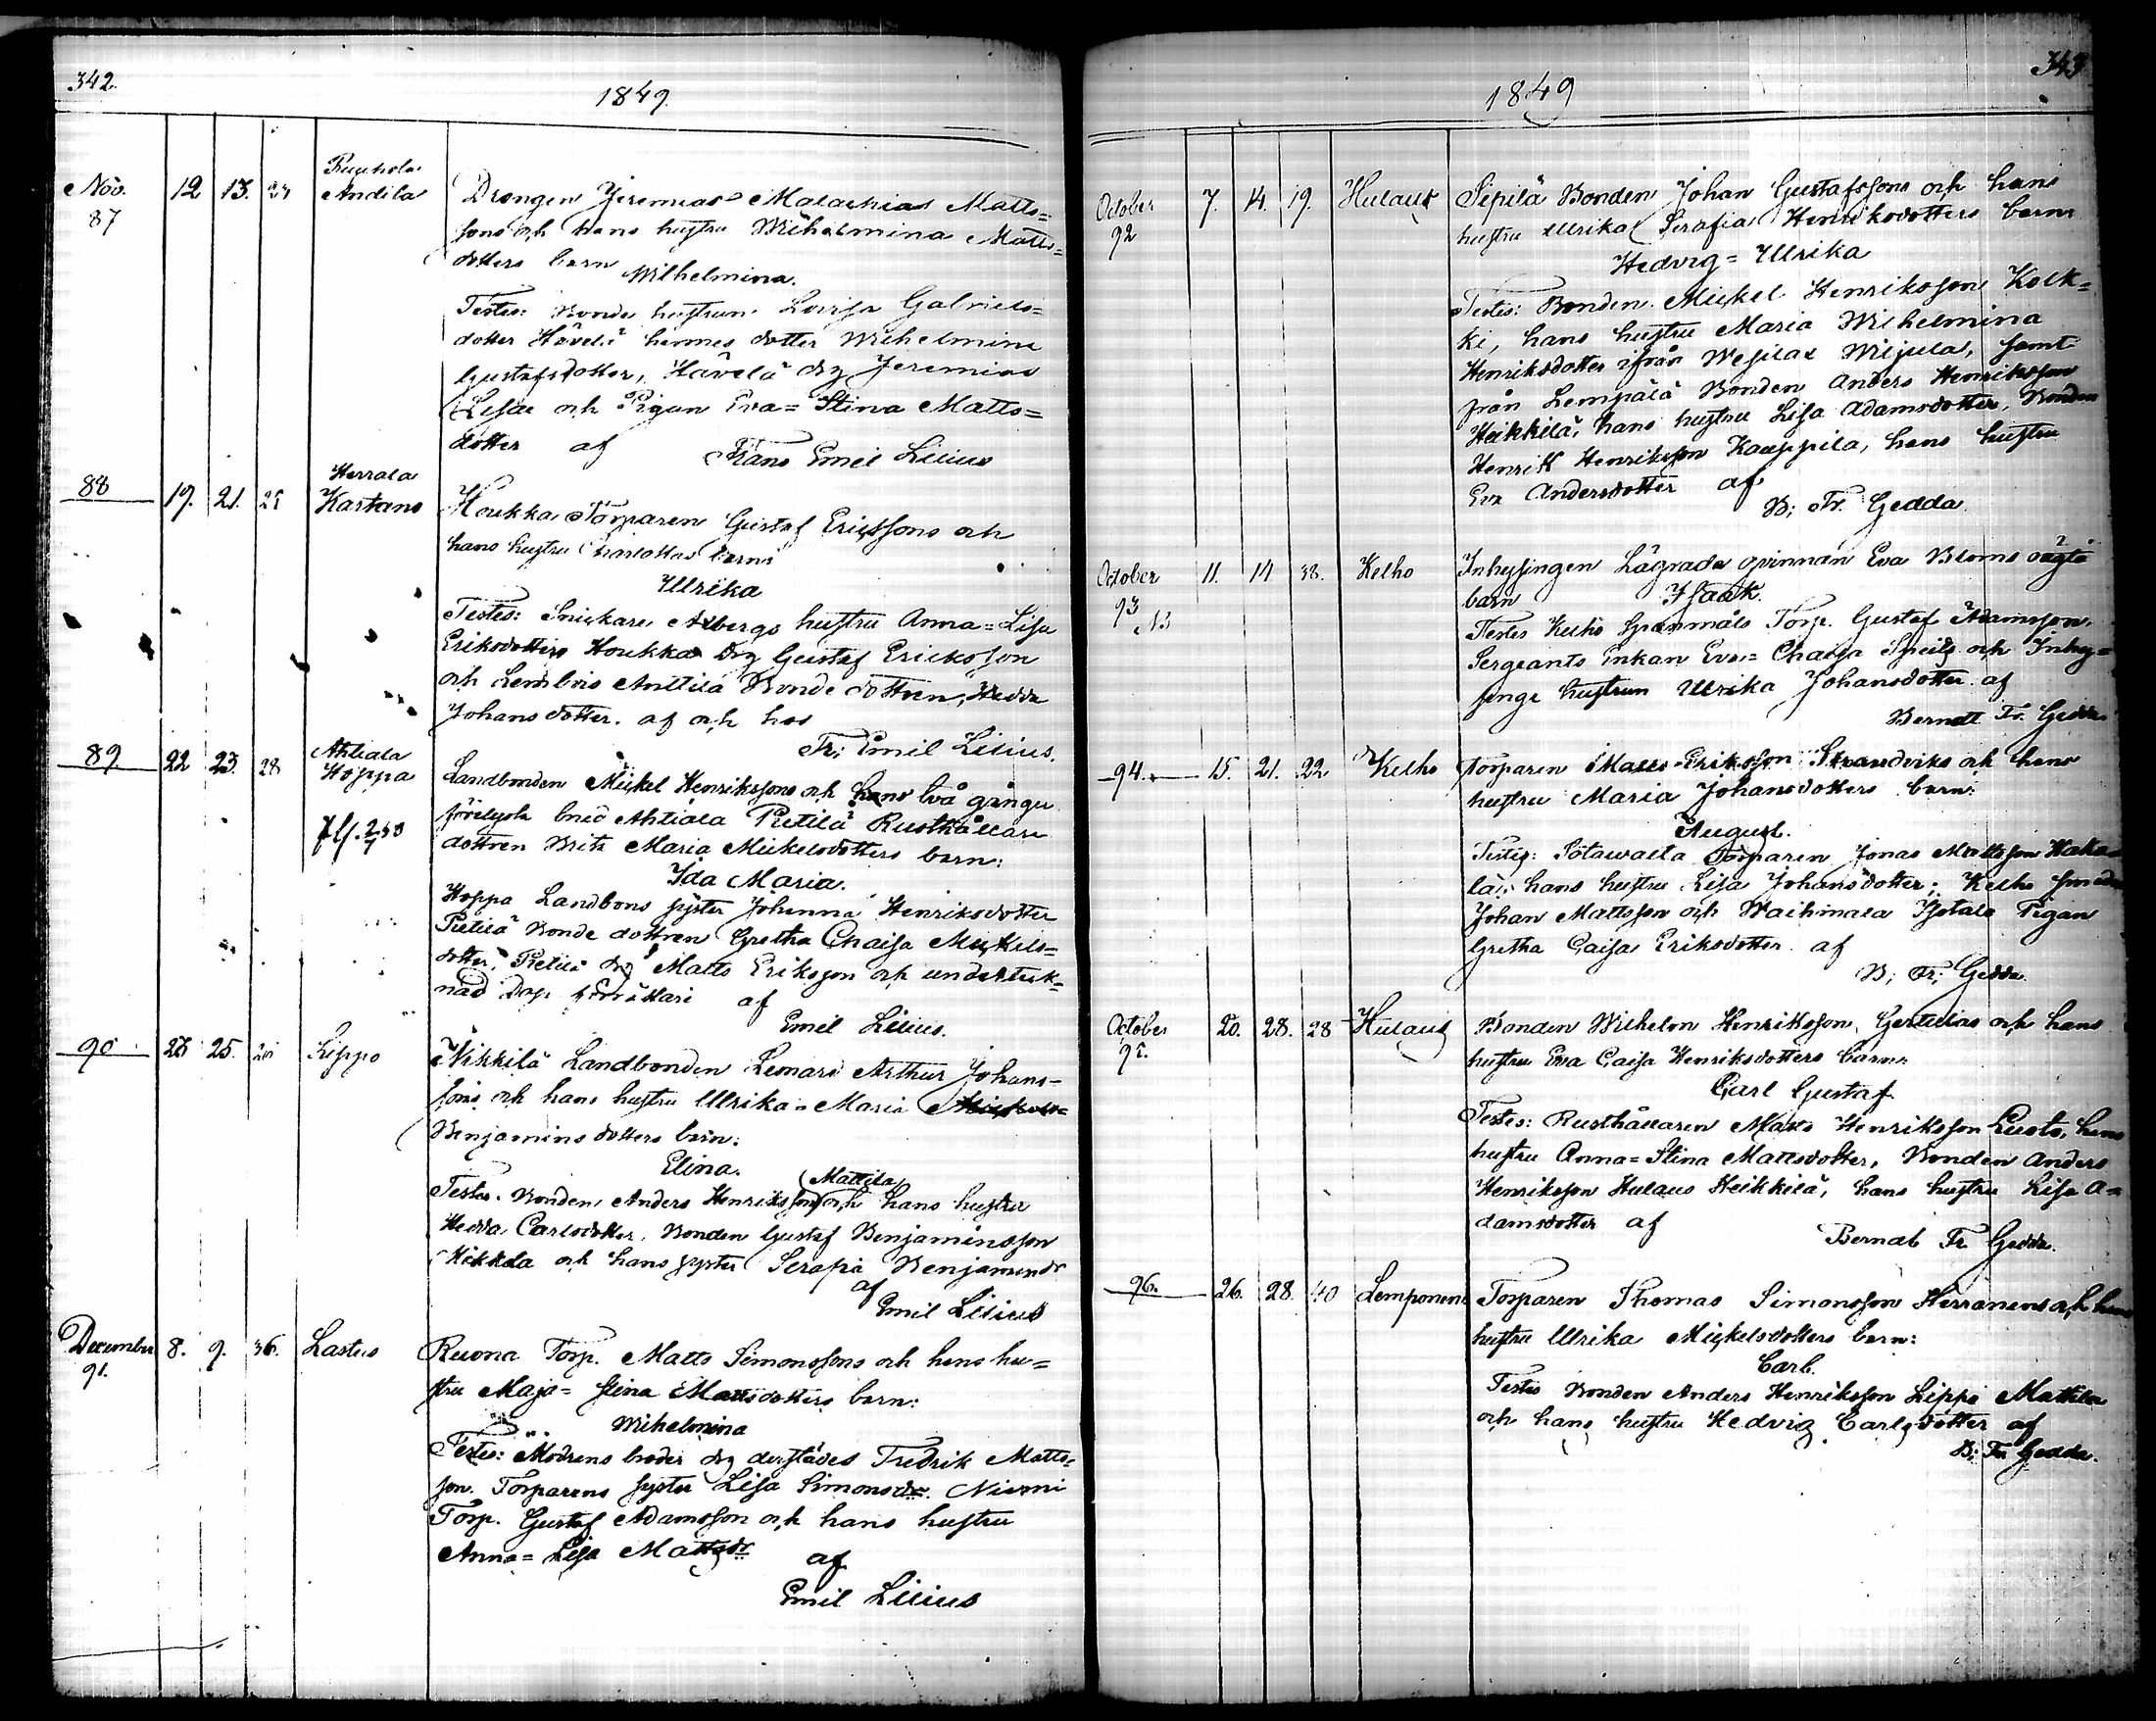 342.
1849.
Nov. 12 13. 23
87
Andila
Drengen Jeremias Malachias Matts=
sons och hans hustru Wilhelmina Matts=
dotters barn
Wilhelmina.
Testes: Bonde hustrun Lovisa Gabriels=
dotter Hävelä hennes dotter Wilhelmina
Gustafsdotter, Hävelä drg Jeremias
och Pigan Eva=Stina Matts=
dotter af Frans Emil Lilius
88 19. 21. 25 Herrala
Kastans
Houkka Torparen Gustaf Ericssons och
hans hustru Charlottas barn
Ullrika
Testes: Snickare hustru Anna=Lisa
Eriksdotters Houkka drg Gustaf Ericksson
och Lembois Anttila Bonde dottren, Hedda
Johansdotter. af och hos
Fr: Emil Lilius.
89. 22 23. 28 Ahtiala
Hoppa
Landbonden Mickel Henrikssons och hans två gånger
förelysta brud Ahtiala Pietilä Rusthållare
dottren Brita Maria Mickelsdotters barn:
Ida Maria.
Hoppa Landbons syster Johanna Henriksdotter
Pietilä Bonde dottren Gretha Chaisa Mickels=
dotter, Pietilä drg Matts Eriksson och underteck=
nad Dop förrättare af
Emil Lilius.
90 23 25. Lippo
Nikkilä Landbonden Lenard Arthur Johans=
sons och hans hustru Ullrika Maria
Benjamins dotters barn:
Elina.
Mattila
Testes. Bonden Anders Henriksson och hans hustru
Hedda Carlsdotter. Bonden Gustaf Benjaminsson
Nikkila och hans syster Serafia Benjaminsdr
af
Emil Lilius
December 8. 9. 36. Lastus
91.
Ruona Torp. Matts Simonssons och hans hu=
stru Maja=Stina Mattsdotters barn:
Wilhelmina
Testes: Modrens broder drg derstädes Fredrik Matts=
son. Torparens syster Lisa Simonsdr. Niemi
Torp. Gustaf Adamsson och hans hustru
Anna=Lisa Mattsdr af
Emil Lilius
343
1849
October 7. 14. 19. Hulaus
92
Sipilä Bonden Johan Gustafssons och hans
hustru Ulrika Serafia Henriksdotters barn
Hedvig=Ulrika
Testes: Bonden Mickel Henriksson Kolk=
ki, hans hustru Maria Wilhelmina
Henriksdotter ifrån Wesilax Wiljula, samt
från Lempälä Bonden Anders Henriksson
Heikkilä, hans hustru Lisa Adamsdotter, Bonden
Henrik Henriksson Kauppila, hans hustru
Eva Andersdotter af
B: Fr. Gedda.
October 11. 14 38. Kelho
93
Inhysingen Lägrade qvinnan Eva Bloms oägta
barn Isaak.
Testes Kelho Torp. Gustaf Adamsson.
Sergeants Enkan Eva=Chaisa och Inhy=
singe hustrun Ulrika Johansdotter. af
Berndt Fr. Gedda.
94. 15. 21. 22 Kelho
Torparen Matts Eriksson Strandviks och hans
hustru Maria Johansdotters barn:
August.
Testes: Sotawalta Torparen Jonas Mattsson Haka=
la, hans hustru Lisa Johansdotter; Kelho
Johan Mattsson och Waihmala Isotalo Pigan
Gretha Caisa Eriksdotter. af
B; Fr; Gedda.
October 20. 28. 28 Hulaus
95.
Bonden Wilhelm Henriksson, Gertulas och hans
hustru Eva Caisa Henriksdotters barn:
Carl Gustaf
Testes: Rusthållaren Matts Henriksson Kuoto, hans
hustru Anna=Stina Mattsdotter, Bonden Anders
Henriksson Hulaus Heikkilä, hans hustru Lisa A=
damsdotter af
Berndt Fr Gedda.
96. 26. 28. 40 Lemponen
Torparen Thomas Simonsson Herranens och hans
hustru Ulrika Mickelsdotters barn:
Carl.
Testes Bonden Anders Henriksson Lippo Mattila
och hans hustru Hedvig Carlsdotter af
B: Fr Gedda.